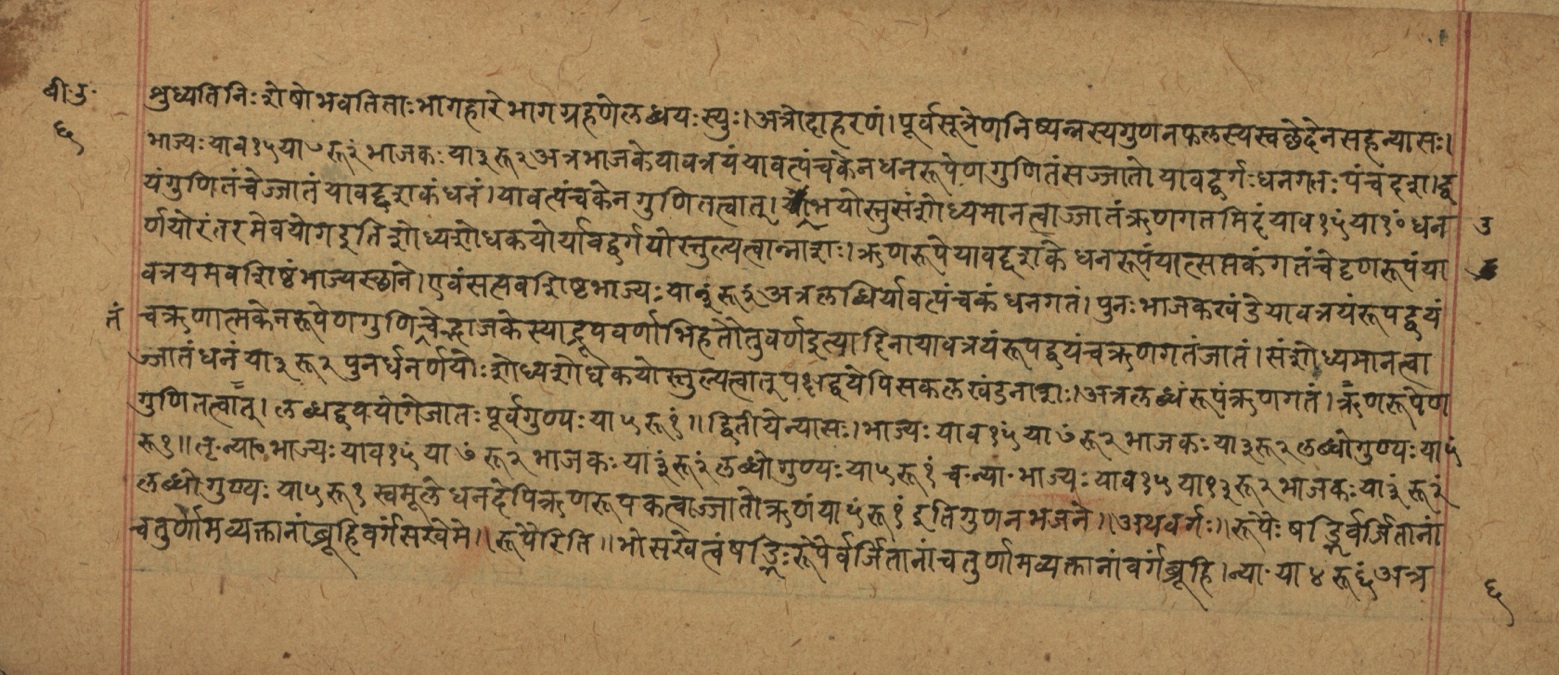 बी॰उ॰
६
शुध्यति निःशेषो भवति ताः भागहारे भागग्रहणे लब्धयः स्युः। अत्रोदाहरणं। पूर्वसूत्रेण निष्पन्नस्य गुणनफलस्य स्वछेदेन सह न्यासः।
भाज्यः याव १५ या ७ं रू २ं भाजकः या ३ रू २ अत्र भाजके यावत्रयं यावत्पंचकेन धनरूपेण गुणितं सज्जातो यावद्वर्गः धनगतः पंचदश। द्व
यं गुणितं चेज्जातं यावद्दशकं धनं। यावत्पंचकेन गुणितत्वात्। भयोस्तु संशोध्यमानत्वाज्जातं ऋणगतमिदं याव १५ं या १०ं धन
र्णयोरंतरमेव योग इति शोध्यशोधकयोर्यावद्वर्गयोस्तुल्यत्वान्नाशः। ऋणरूपे यावद्दशके धनरूपं यात्सप्तकं गतं चेदृणरूपं या
वत्रयमवशिष्टं भाज्यस्छाने। एवं सत्यवशिष्टभाज्यः या ३ं रू २ं अत्र लब्धिर्यावत्पंचकं धनगतं। पुनः भाजकखंडे यावत्रयं रूपद्वयं
च ऋणात्मकेन रूपेण गुणि चेद्भाजके स्याद्रूपवर्णाभिहतौ तु वर्ण इत्यादिना यावत्रयं रूपद्वयं च ऋणगतं जातं। संशोध्यमानत्वा
तं
ज्जातं धनं या ३ रू २ पुनर्धनर्णयोः शोध्यशोधकयोस्तुल्यत्वात् पक्षद्वयेपि सकलखंडनाशः। अत्र लब्धं रूपं ऋणगतं। ऋणरूपेण
गुणितत्वात्। लब्धद्वययोगे जातः पूर्वगुण्यः या ५ रू १ं॥ द्वितीये न्यासः। भाज्यः याव १५ं या ७ं रू २ भाजकः या ३ रू २ लब्धो गुण्यः या ५ं
रू १॥ तृ॰ न्या॰ भाज्यः याव १५ं या ७ं रू २ भाजकः या ३ं रू २ं लब्धो गुण्यः या ५ रू १ं च॰ न्या॰ भाज्यः याव १५ या १३ रू २ भाजकः या ३ं रू २ं
लब्धो गुण्यः या ५ रू १ स्वमूले धनदेपि ऋणरूपकत्वाज्जातो ऋणं या ५ं रू १ं इति गुणनभजने॥ अथ वर्गः॥ रूपैः षड्भिर्वर्जितानां
चतुर्णामव्यक्तानां ब्रूहि वर्गं सखे मे॥ रूपैरिति॥ भो सखे त्वं षड्भिः रूपैर्वर्जितानां चतुर्णामव्यक्तानां वर्गं ब्रूहि। न्या॰ या ४ रू ६ं अत्र
६